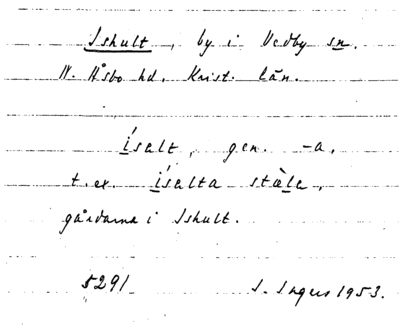 Ishult, by i Vedby sn.
N. Åsbo hd. Krist. län.
ísalt, gen. -a,
t.ex. ísalta stàle,
gårdarna i Ishult.
5291 I. Ingers 1953.